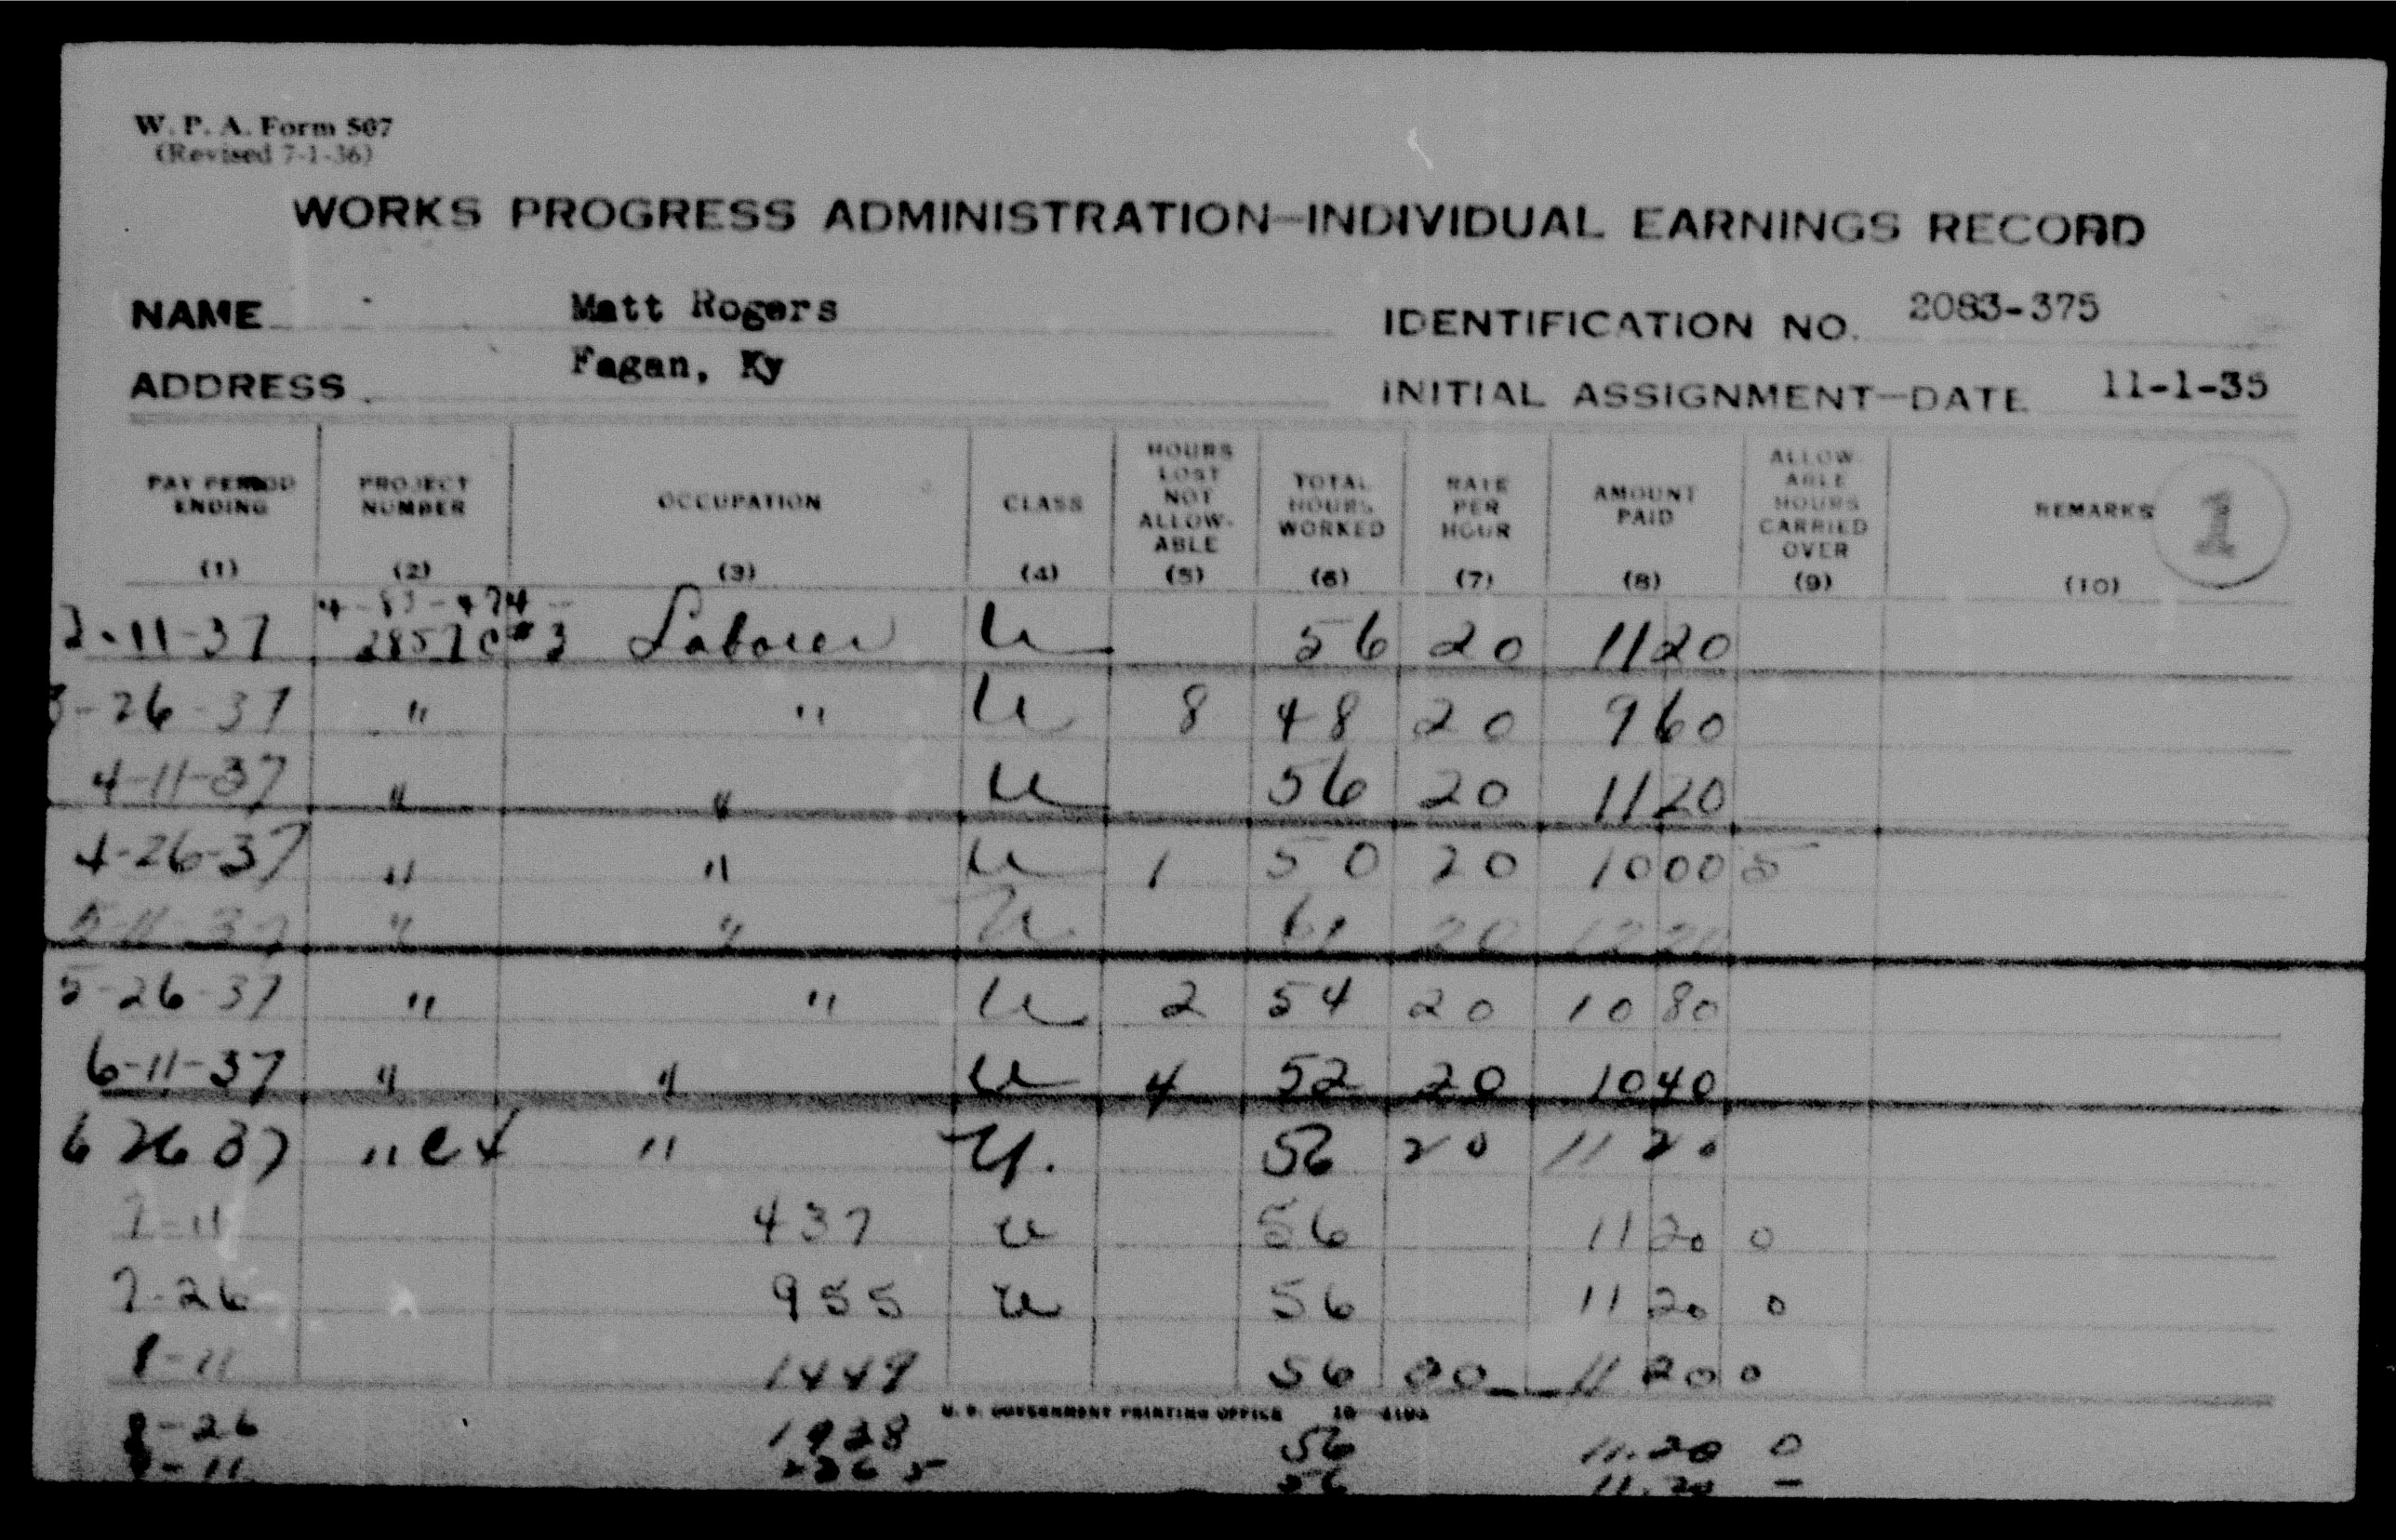 W. P. A. Form 507
(Revised 7-1-36)
WORKS PROGRESS ADMINISTRATION—INDIVIDUAL EARNINGS RECORD
NAME Matt Rogers IDENTIFICATION NO. 2083-375
ADDRESS Fagan, Ky INITIAL ASSIGNMENT—DATE 11-1-35
PAY PERIOD ENDING (1) PROJECT NUMBER (2) OCCUPATION (3) CLASS (4) HOURS LOST NOT ALLOW-ABLE (5) TOTAL HOURS WORKED (6) RATE PER HOUR (7) AMOUNT PAID (8) ALLOW-ABLE HOURS CARRIED OVER (9) REMARKS (10) 1
4-83-474-
-11-37 2857C#3 Laborer U 56 20 11 20
3-26-37 " " U 8 48 20 9 60
4-11-37 " " U 56 20 11 20
4-26-37 " " U 1 50 20 10 00 5
5-11-37 " " U 61 20 12 20
5-26-37 " " U 2 54 20 10 80
6-11-37 " " U 4 52 20 10 40
6 26 37 " " U. 56 20 11 20
7-11 437 U 56 11 20 0
7-26 955 U 56 11 20 0
8-11 1449 56 11 20 0
U. S. GOVERNMENT PRINTING OFFICE
8-26 1928 56 11.20 0
-11 56 11.20 -